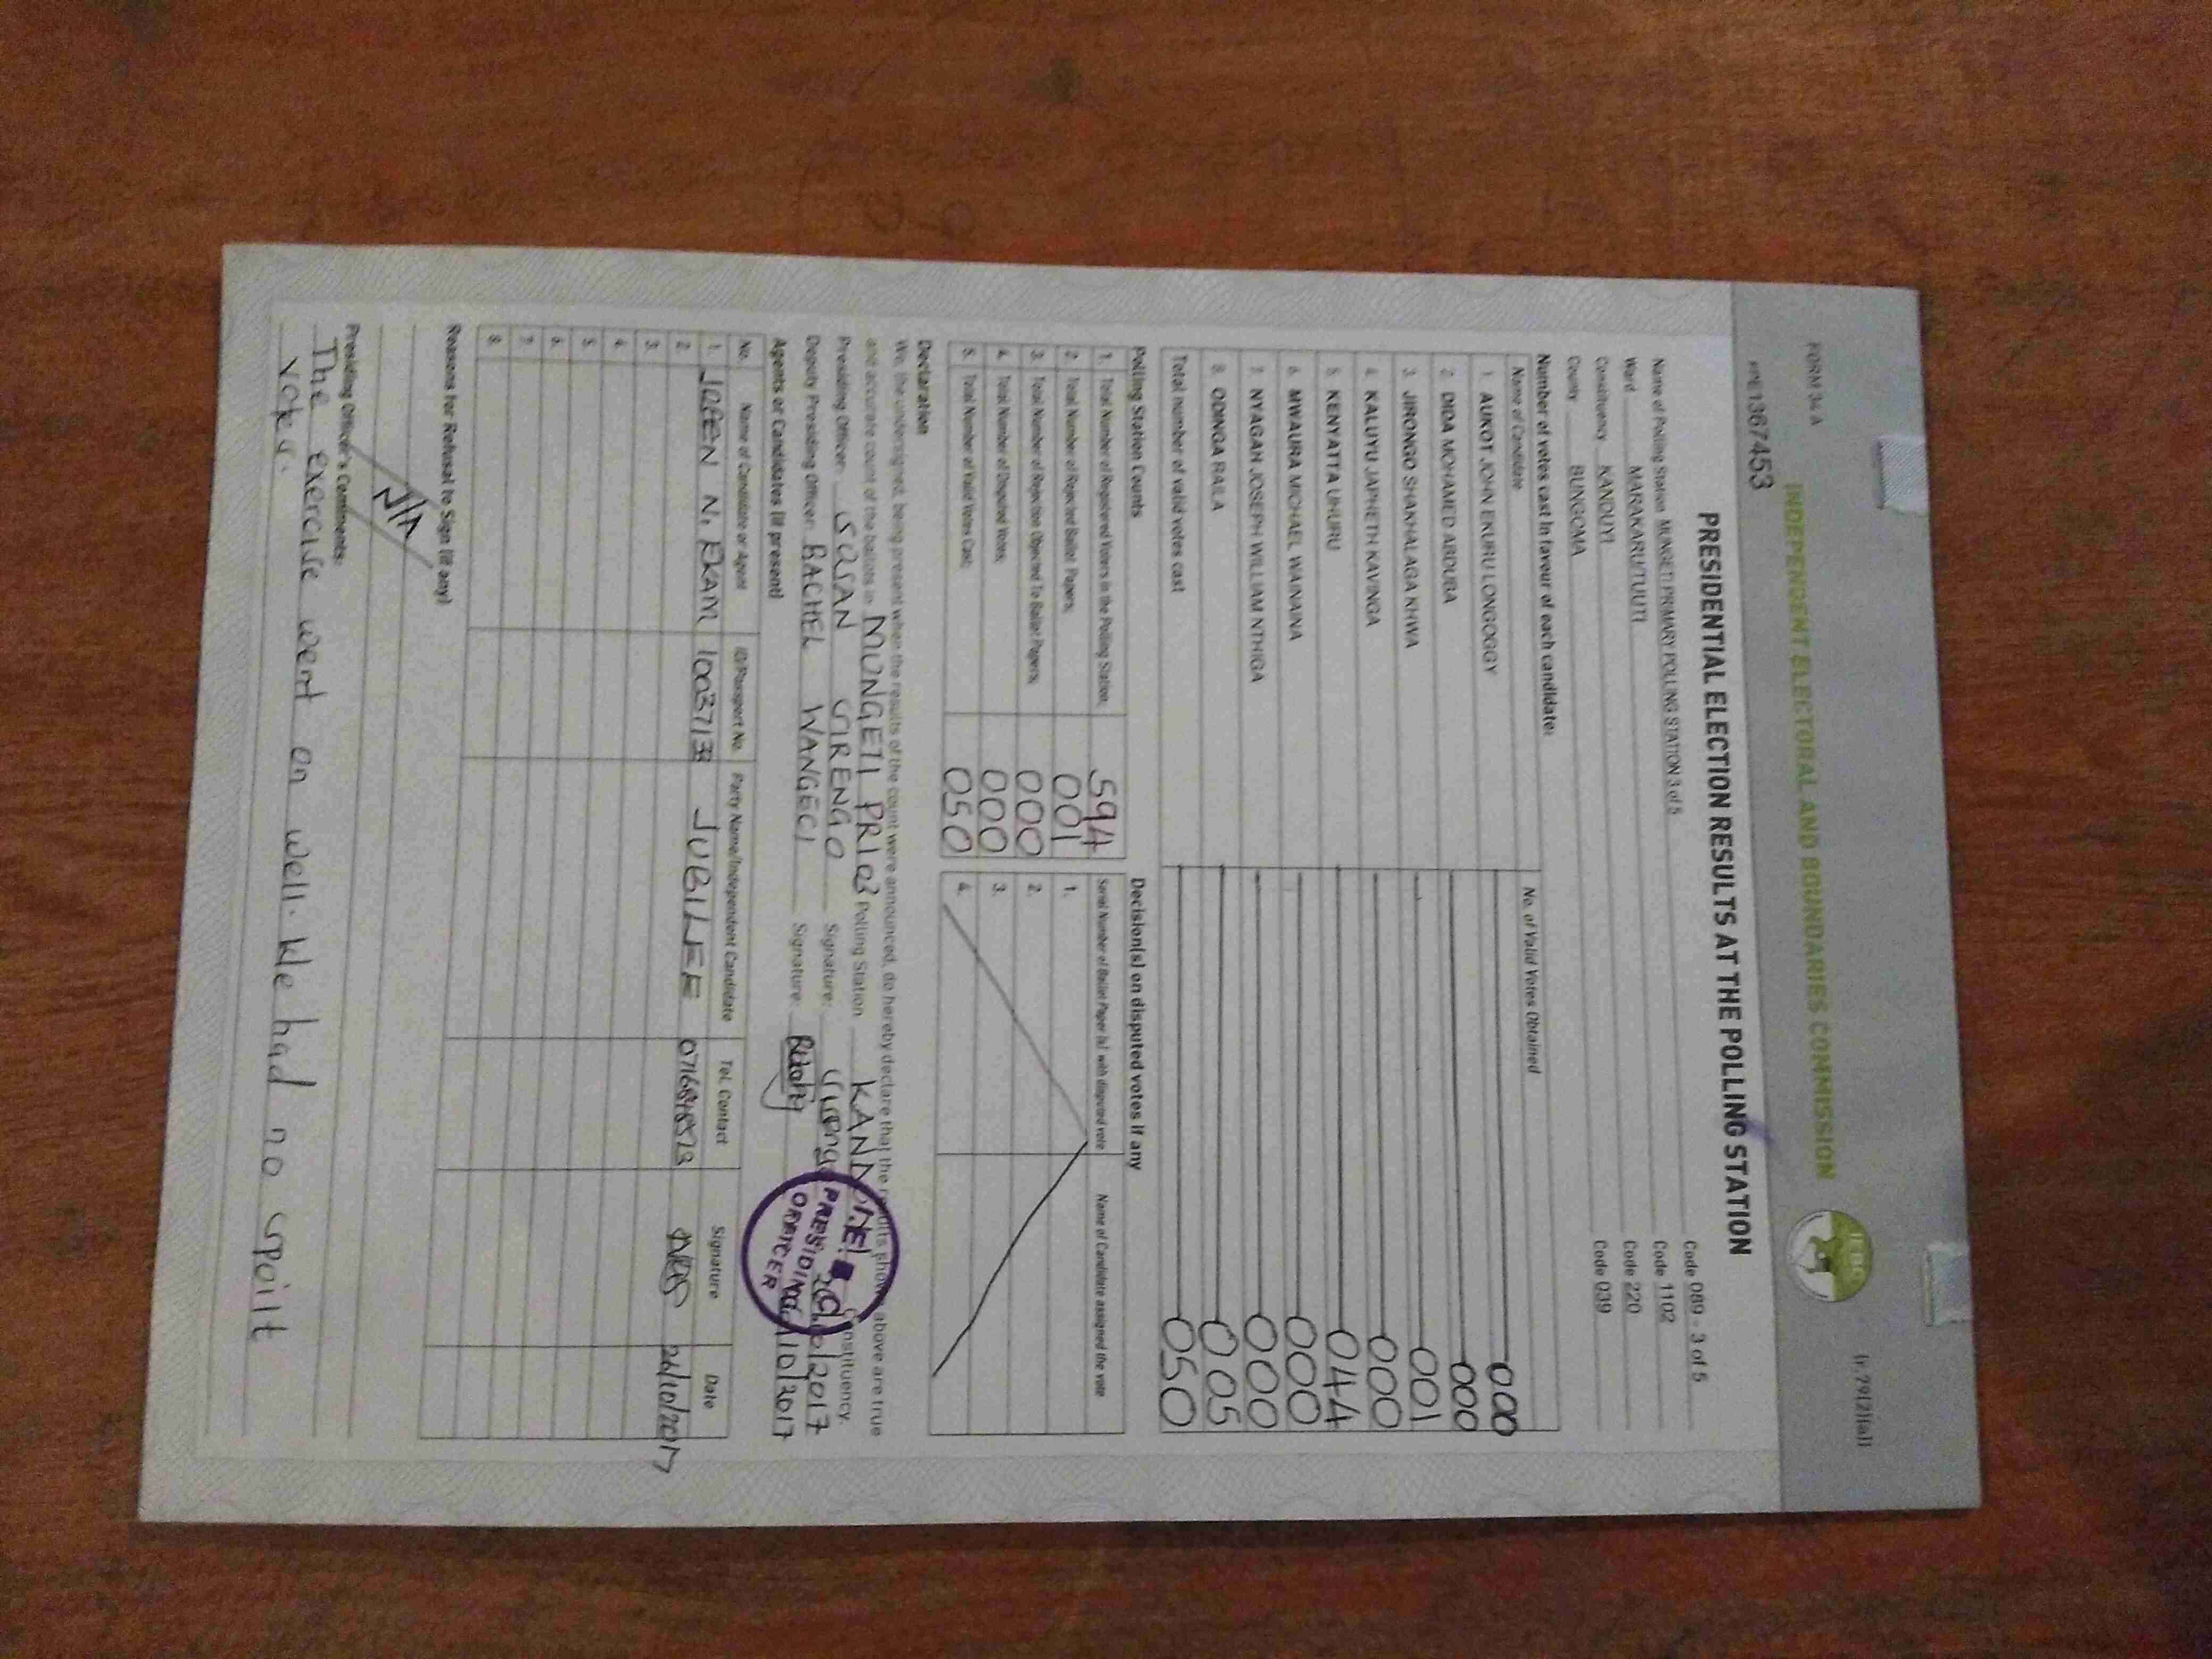 FORM 34 A
(r.79(2)(a))
INDEPENDENT ELECTORAL AND BOUNDARIES COMMISSION
IEBC
PPE1367453
PRESIDENTIAL ELECTION RESULTS AT THE POLLING STATION
Name of Polling Station MUNGETI PRIMARY POLLING STATION 3 of 5 Code 089 - 3 of 5
Ward MARAKARU/TUUTI Code 1102
Constituency KANDUYI Code 220
County BUNGOMA Code 039
Number of votes cast in favour of each candidate:
Name of Candidate No. of Valid Votes Obtained
1. AUKOT JOHN EKURU LONGOGGY 000
2. DIDA MOHAMED ABDUBA 000
3. JIRONGO SHAKHALAGA KHWA 001
4. KALUYU JAPHETH KAVINGA 000
5. KENYATTA UHURU 044
6. MWAURA MICHAEL WAINAINA 000
7. NYAGAH JOSEPH WILLIAM NTHIGA 000
8. ODINGA RAILA 005
Total number of valid votes cast 050
Polling Station Counts
1. Total Number of Registered Voters in the Polling Station; 594
2. Total Number of Rejected Ballot Papers; 001
3. Total Number of Rejection Objected To Ballot Papers; 000
4. Total Number of Disputed Votes; 000
5. Total Number of Valid Votes Cast; 050
Decision(s) on disputed votes if any
Serial Number of Ballot Paper (s) with disputed vote Name of Candidate assigned the vote
1.
2.
3.
4.
Declaration
We, the undersigned, being present when the results of the count were announced, do hereby declare that the results shown above are true
and accurate count of the ballots in MUNGETI PRI 03 Polling Station Constituency.
Presiding Officer: SUSAN SIRENGO Signature:
Deputy Presiding Officer: RACHEL WANGECI Signature:
PRESIDING
OFFICER
Agents or Candidates (if present)
No. Name of Candidate or Agent ID/Passport No. Party Name/Independent Candidate Tel. Contact Signature Date
1. N. EKAM JUBILEE 26/10/2017
2.
3.
4.
5.
6.
7.
8.
Reasons for Refusal to Sign (if any)
N/A
Presiding Officer's Comments:
The exercise went on well. We had no spoilt
votes.